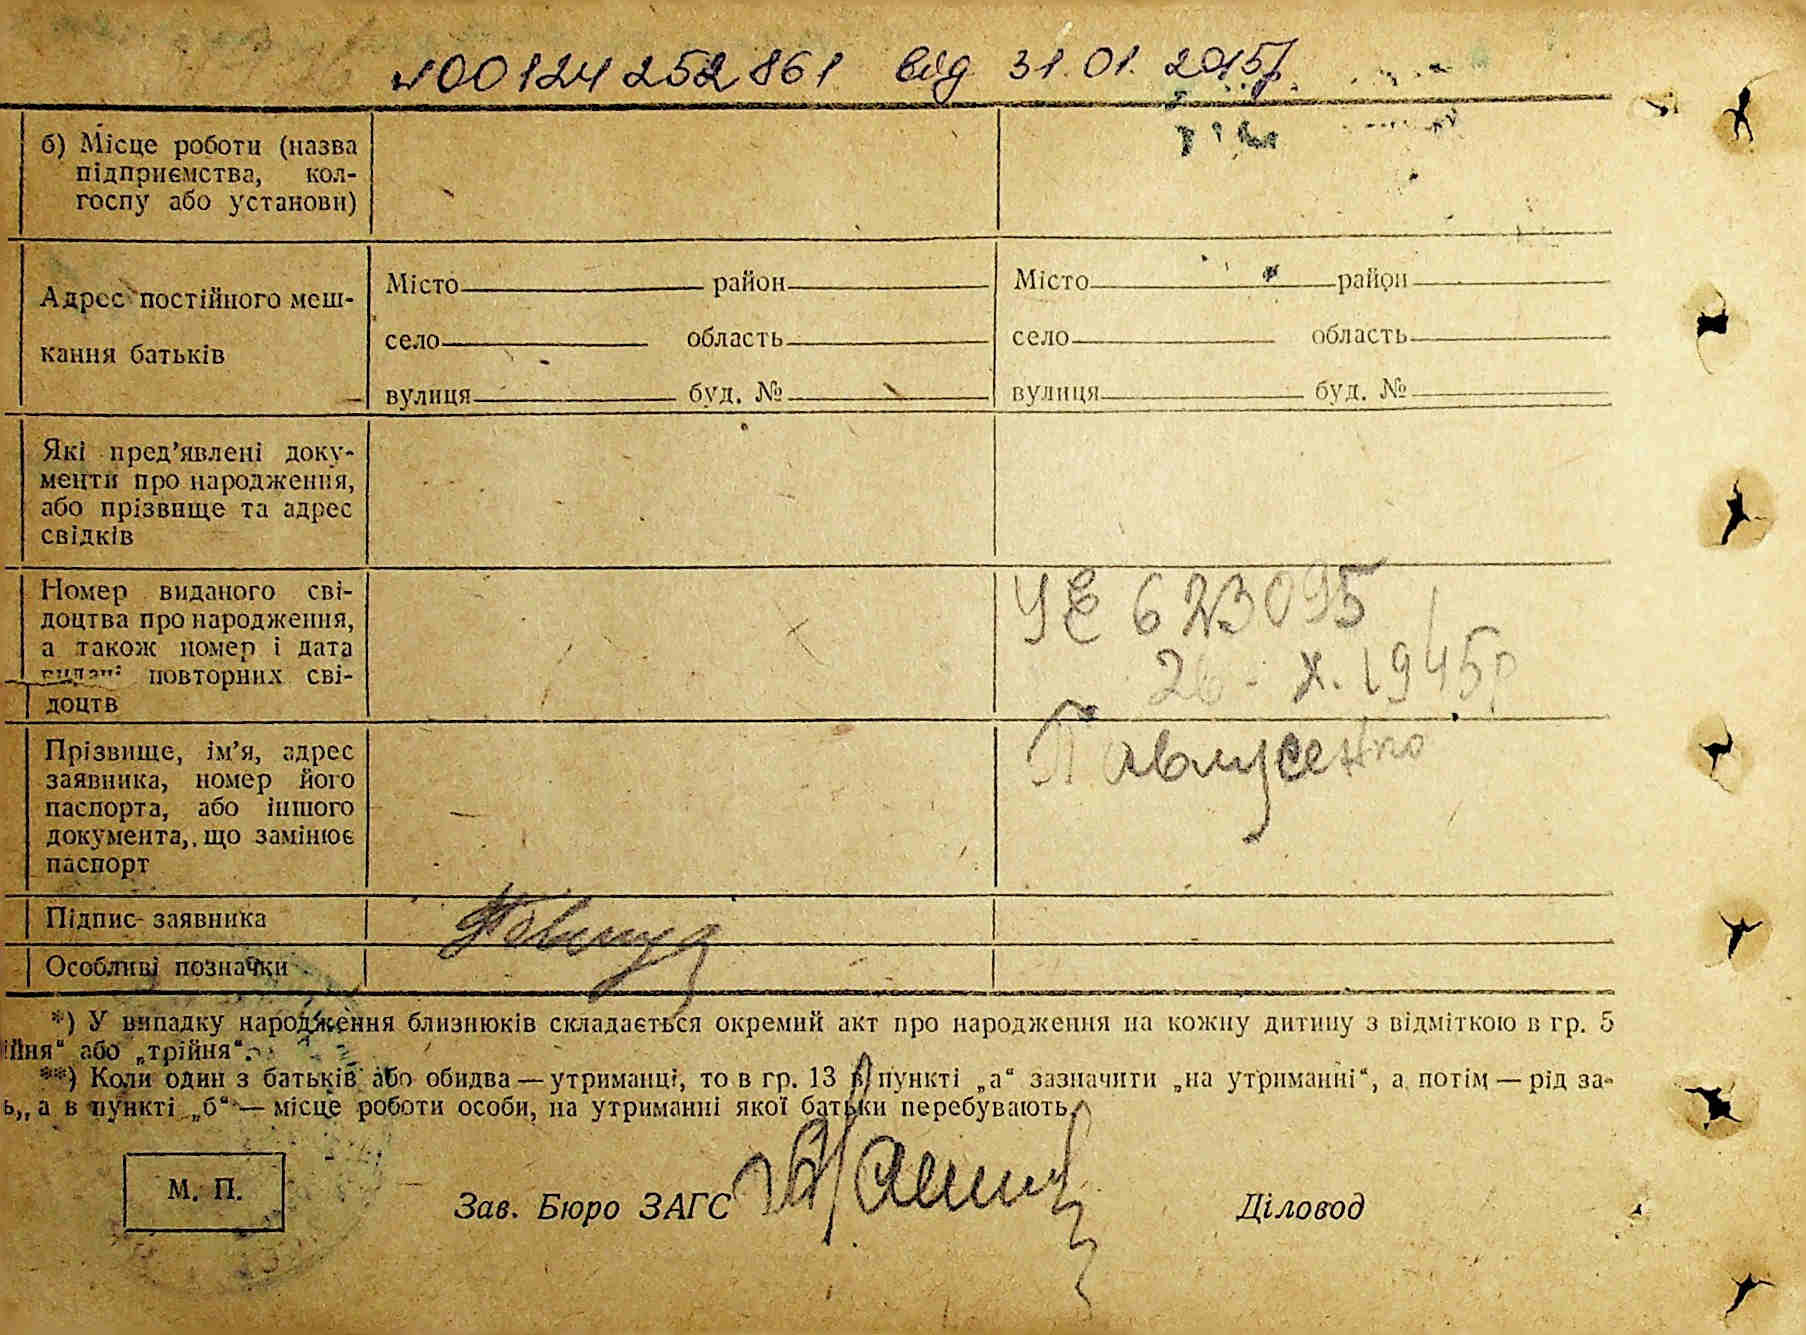 00124252861 від 31.01.2015р.
б) Місце роботи (назва
підприємства, кол-
госпу або установи)
Адрес постійного меш-
кання батьків
Місто район
село область
вулиця буд. №
Місто район
село область
вулиця буд. №
Які пред’явлені доку-
менти про народження,
або прізвище та адрес
свідків
Номер виданого сві-
доцтва про народження,
а також номер і дата
видачі повторних сві-
доцтв
УЕ 623095
26 - X. 1945р
Прізвище, ім’я, адрес
заявника, номер його
паспорта, або іншого
документа, що замінює
паспорт
Павлусенко
Підпис заявника
Особливі позначки
*) У випадку народження близнюків складається окремий акт про народження на кожну дитину з відміткою в гр. 5
ійня“ або „трійня“.
**) Коли один з батьків або обидва — утриманці, то в гр. 13 в пункті „а“ зазначити „на утриманні“, а потім — рід за-
ь„, а в пункті „б“ — місце роботи особи, на утриманні якої батьки перебувають.
М. П.
Зав. Бюро ЗАГС
Діловод